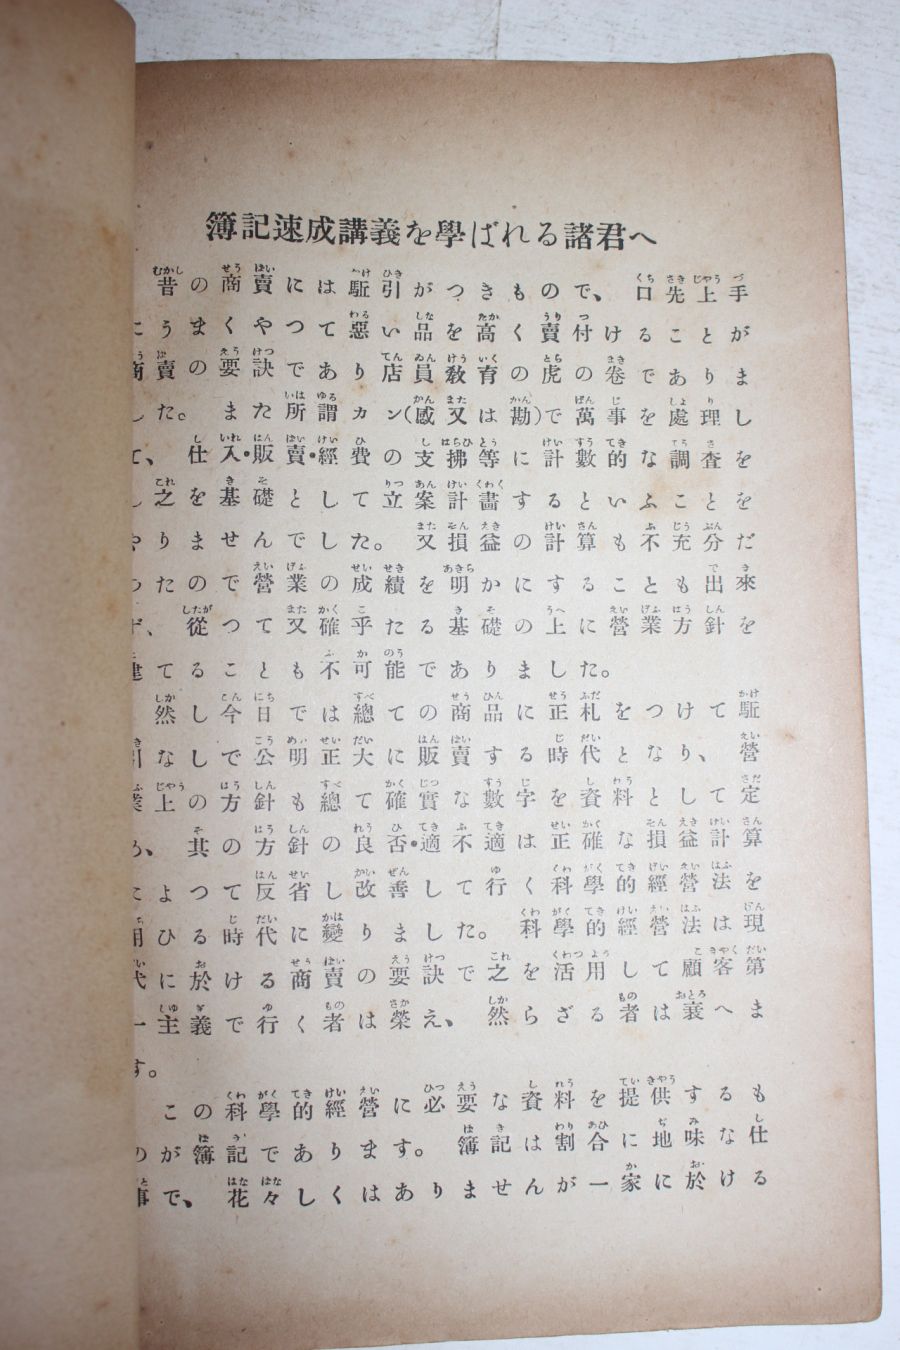 簿記速成講義を學ばれる諸君へ
昔の商賣には駈引がつきもので、口先上手
にうまくやつて惡い品を高く賣付けることが
商賣の要訣であり店員敎育の虎の卷でありま
した。また所謂カン(感又は勘)で萬事を處理し
て、仕入・販賣・經費の支拂等に計數的な調査を
し之を基礎として立案計畫するといふことを
やりませんでした。又損益の計算も不充分だ
つたので營業の成績を明かにすることも出來
ず、從つて又確乎たる基礎の上に營業方針を
建てることも不可能でありました。
然し今日では總ての商品に正札をつけて駈
引なしで公明正大に販賣する時代となり、營
業上の方針も總て確實な數字を資料として定
め、其の方針の良否・適不適は正確な損益計算
によつて反省し改善して行く科學的經營法を
用ひる時代に變りました。科學的經營法は現
代に於ける商賣の要訣で之を活用して顧客第
一主義で行く者は榮え、然らざる者は衰へま
す。
この科學的經營に必要な資料を提供するも
のが簿記であります。簿記は割合に地味な仕
事で、花々しくはありませんが一家に於ける